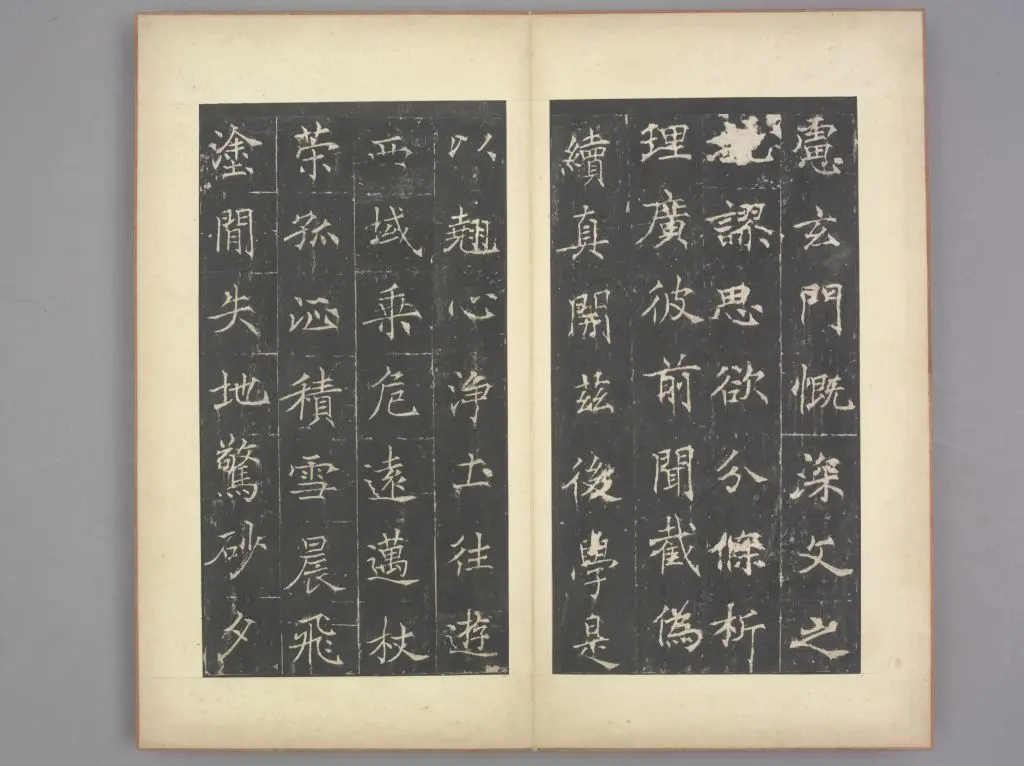 慮玄門慨深文之
謬思欲分條析
理廣彼前聞截偽
續真開茲後學是
以翹心浄土往遊
西域乘危遠邁杖
策孤征積雪晨飛
塗閒失地驚砂夕